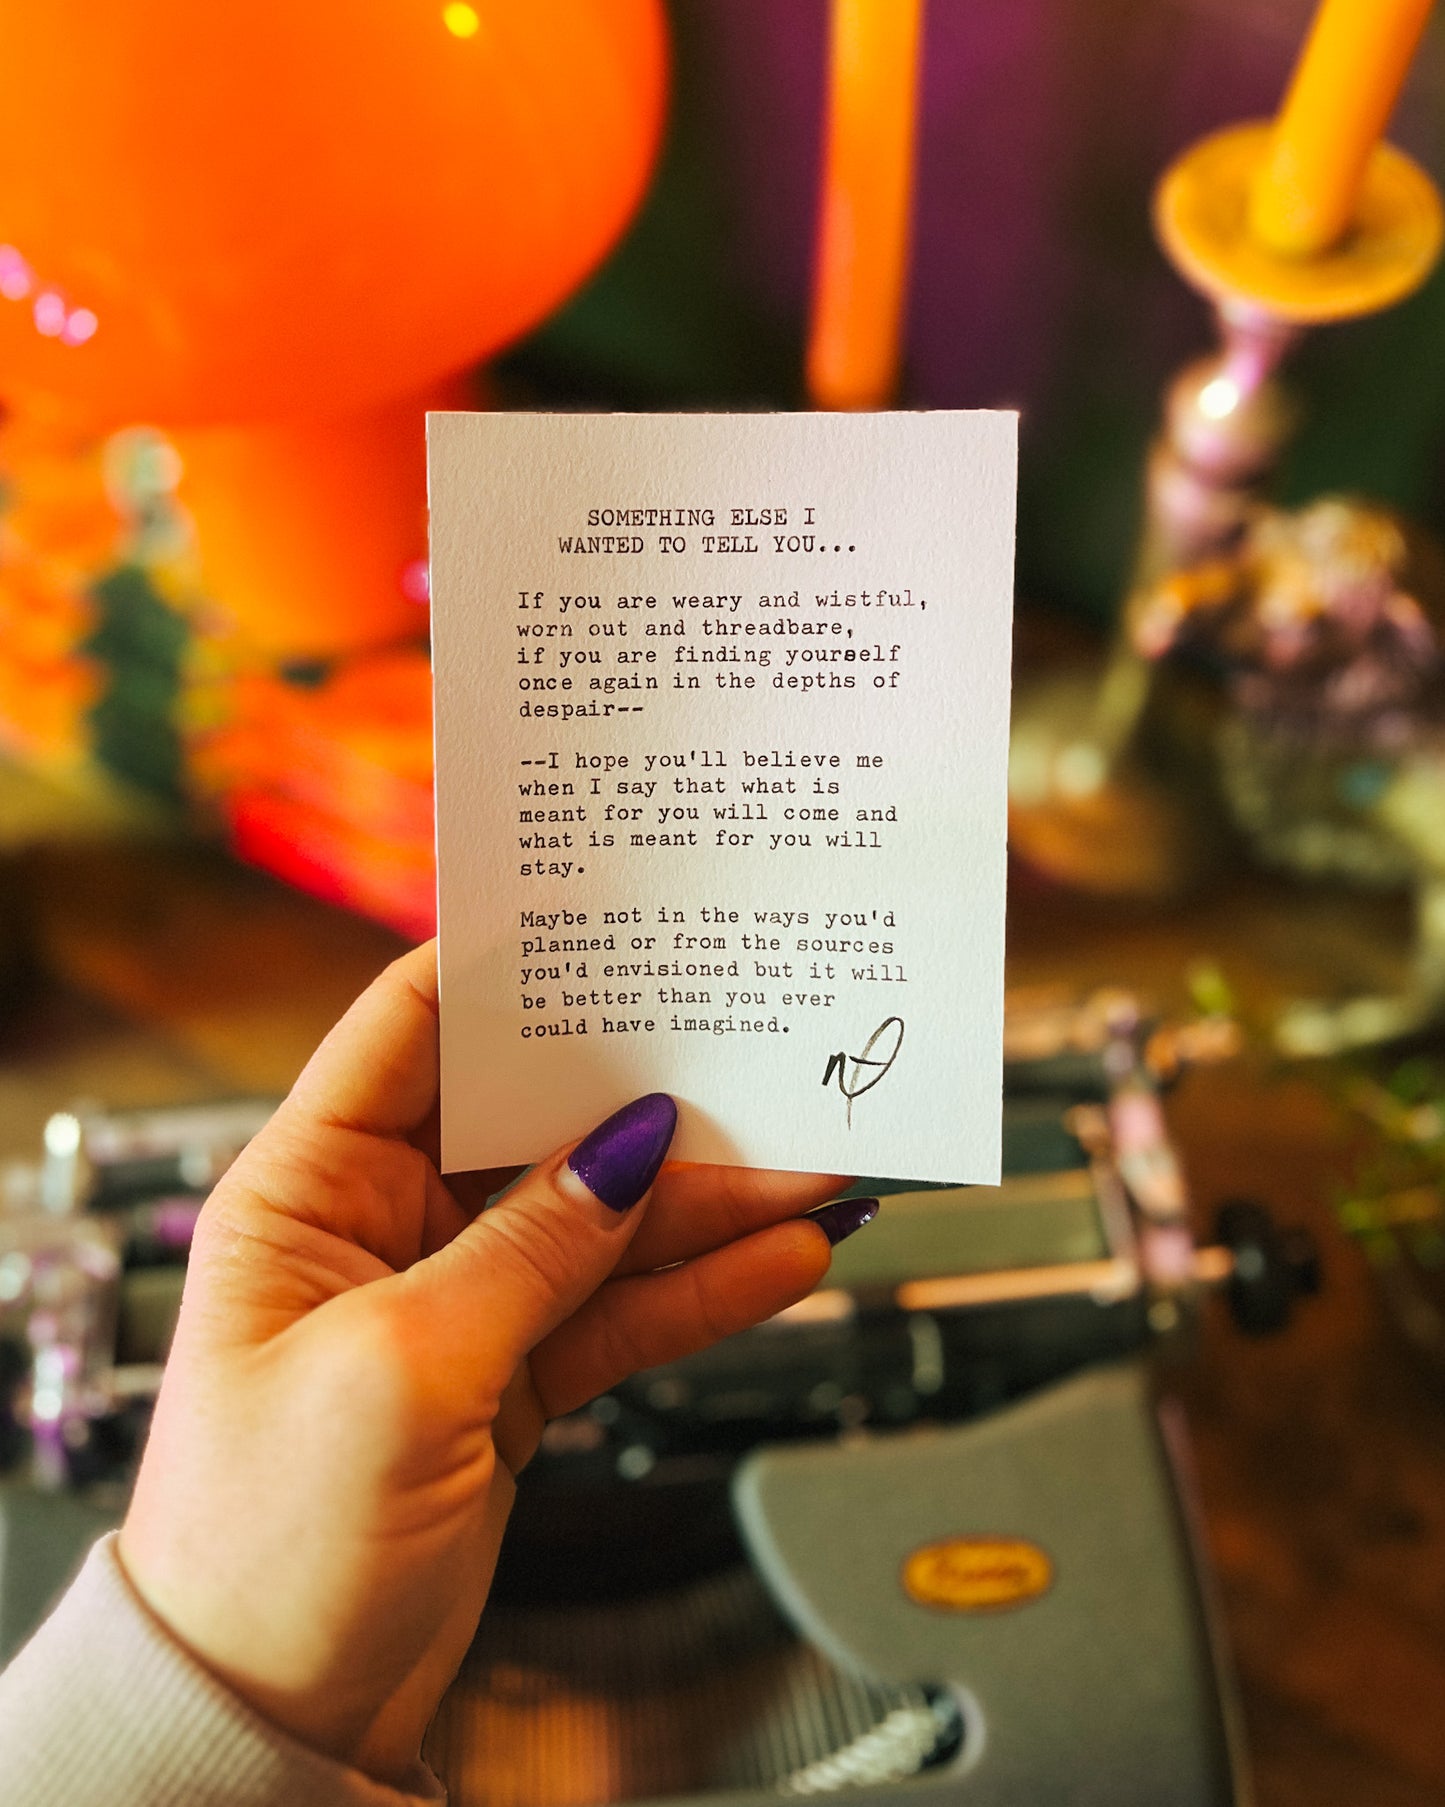 SOMETHING ELSE I
WANTED TO TELL YOU...
If you are weary and wistful,
worn out and threadbare,
if you are finding yourself
once again in the depths of
despair--
--I hope you'll believe me
when I say that what is
meant for you will come and
what is meant for you will
stay.
Maybe not in the ways you'd
planned or from the sources
you'd envisioned but it will
be better than you ever
could have imagined.